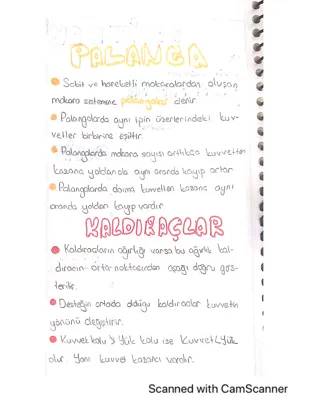 PALANGA
Sabit ve hareketli makaralardan oluşan
makara sistemine palangalar denir.
Palangalarda aynı ipin üzerlerindeki kuv-
vetler birbirine eşittir.
Palangalarda makara sayısı arttıkça kuvvetten
kazanç yoldan da aynı oranda kayıp artar
Palangalarda daima kuvvetten kazanç aynı
oranda yoldan kayıp vardır.
KALDIRAÇLAR
Kaldıraçların ağırlığı varsa bu ağırlık kal-
dıracın orta noktasından aşağı doğru gös-
terilir.
Desteğin ortada olduğu kaldıraçlar kuvvetin
yönünü değiştirir.
Kuvvet kolu > Yük kolu ise Kuvvet<Yük
olur. Yani kuvvet kazancı vardır.
Scanned with CamScanner